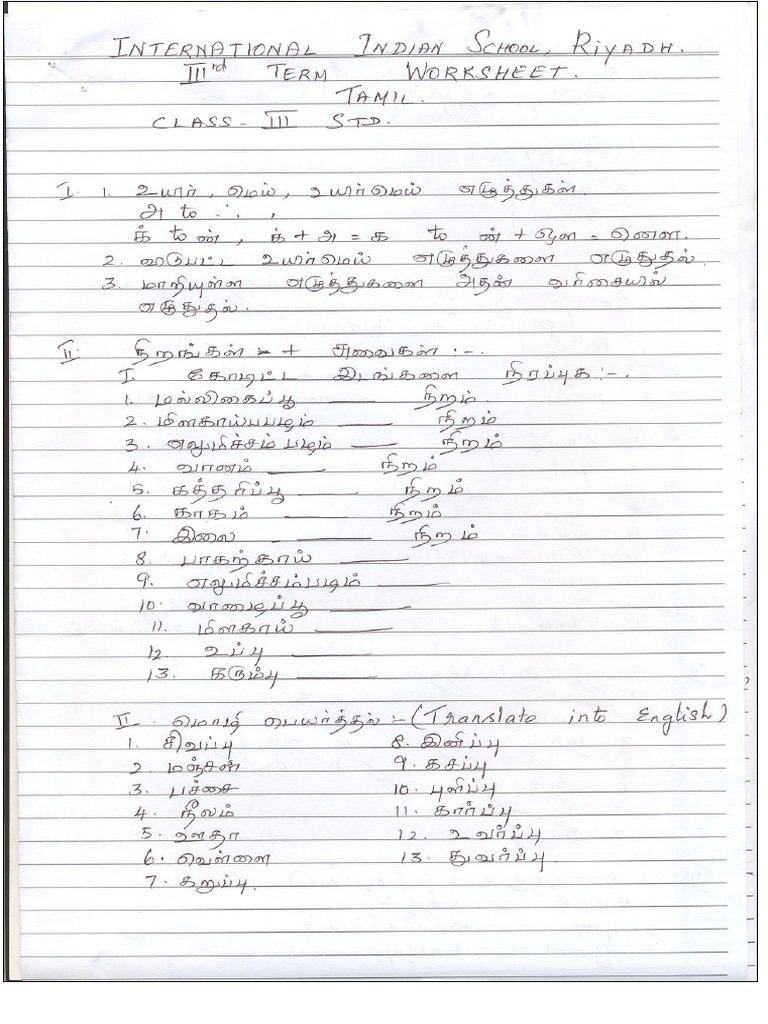 INTERNATIONAL INDIAN SCHOOL, RIYADH.
IIIrd TERM WORKSHEET.
TAMIL.
CLASS - III STD.
I. 1. உயிர், மெய், உயிர்மெய் எழுத்துகள்.
அ to ஃ,
க் to ண், க் + அ = க to ண் + ஔ = ணௌ.
2. விடுபட்ட உயிர்மெய் எழுத்துகளை எழுதுதல்.
3. மாறியுள்ள எழுத்துகளை அதன் வரிசையில்
எழுதுதல்.
II. நிறங்கள் :- + சுவைகள் :-.
I. கோடிட்ட இடங்களை நிரப்புக :-.
1. மல்லிகைப்பூ ____ நிறம்.
2. மிளகாய்பபழம் ____ நிறம்
3. எலுமிச்சம் பழம் ____ நிறம்
4. வானம் ____ நிறம்
5. கத்தரிப்பூ ____ நிறம்
6. காகம் ____ நிறம்
7. இலை ____ நிறம்
8. பாகற்காய் ____
9. எலுமிச்சம்பழம் ____
10. வாழைப்பூ ____
11. மிளகாய் ____
12. உப்பு ____
13. கரும்பு ____
II. மொழி பெயர்த்தல் :- (Translate into English)
1. சிவப்பு 8. இனிப்பு
2. மஞ்சள் 9. கசப்பு
3. பச்சை 10. புளிப்பு
4. நீலம் 11. கார்ப்பு
5. ஊதா 12. உவர்ப்பு
6. வெள்ளை 13. துவர்ப்பு.
7. கறுப்பு.